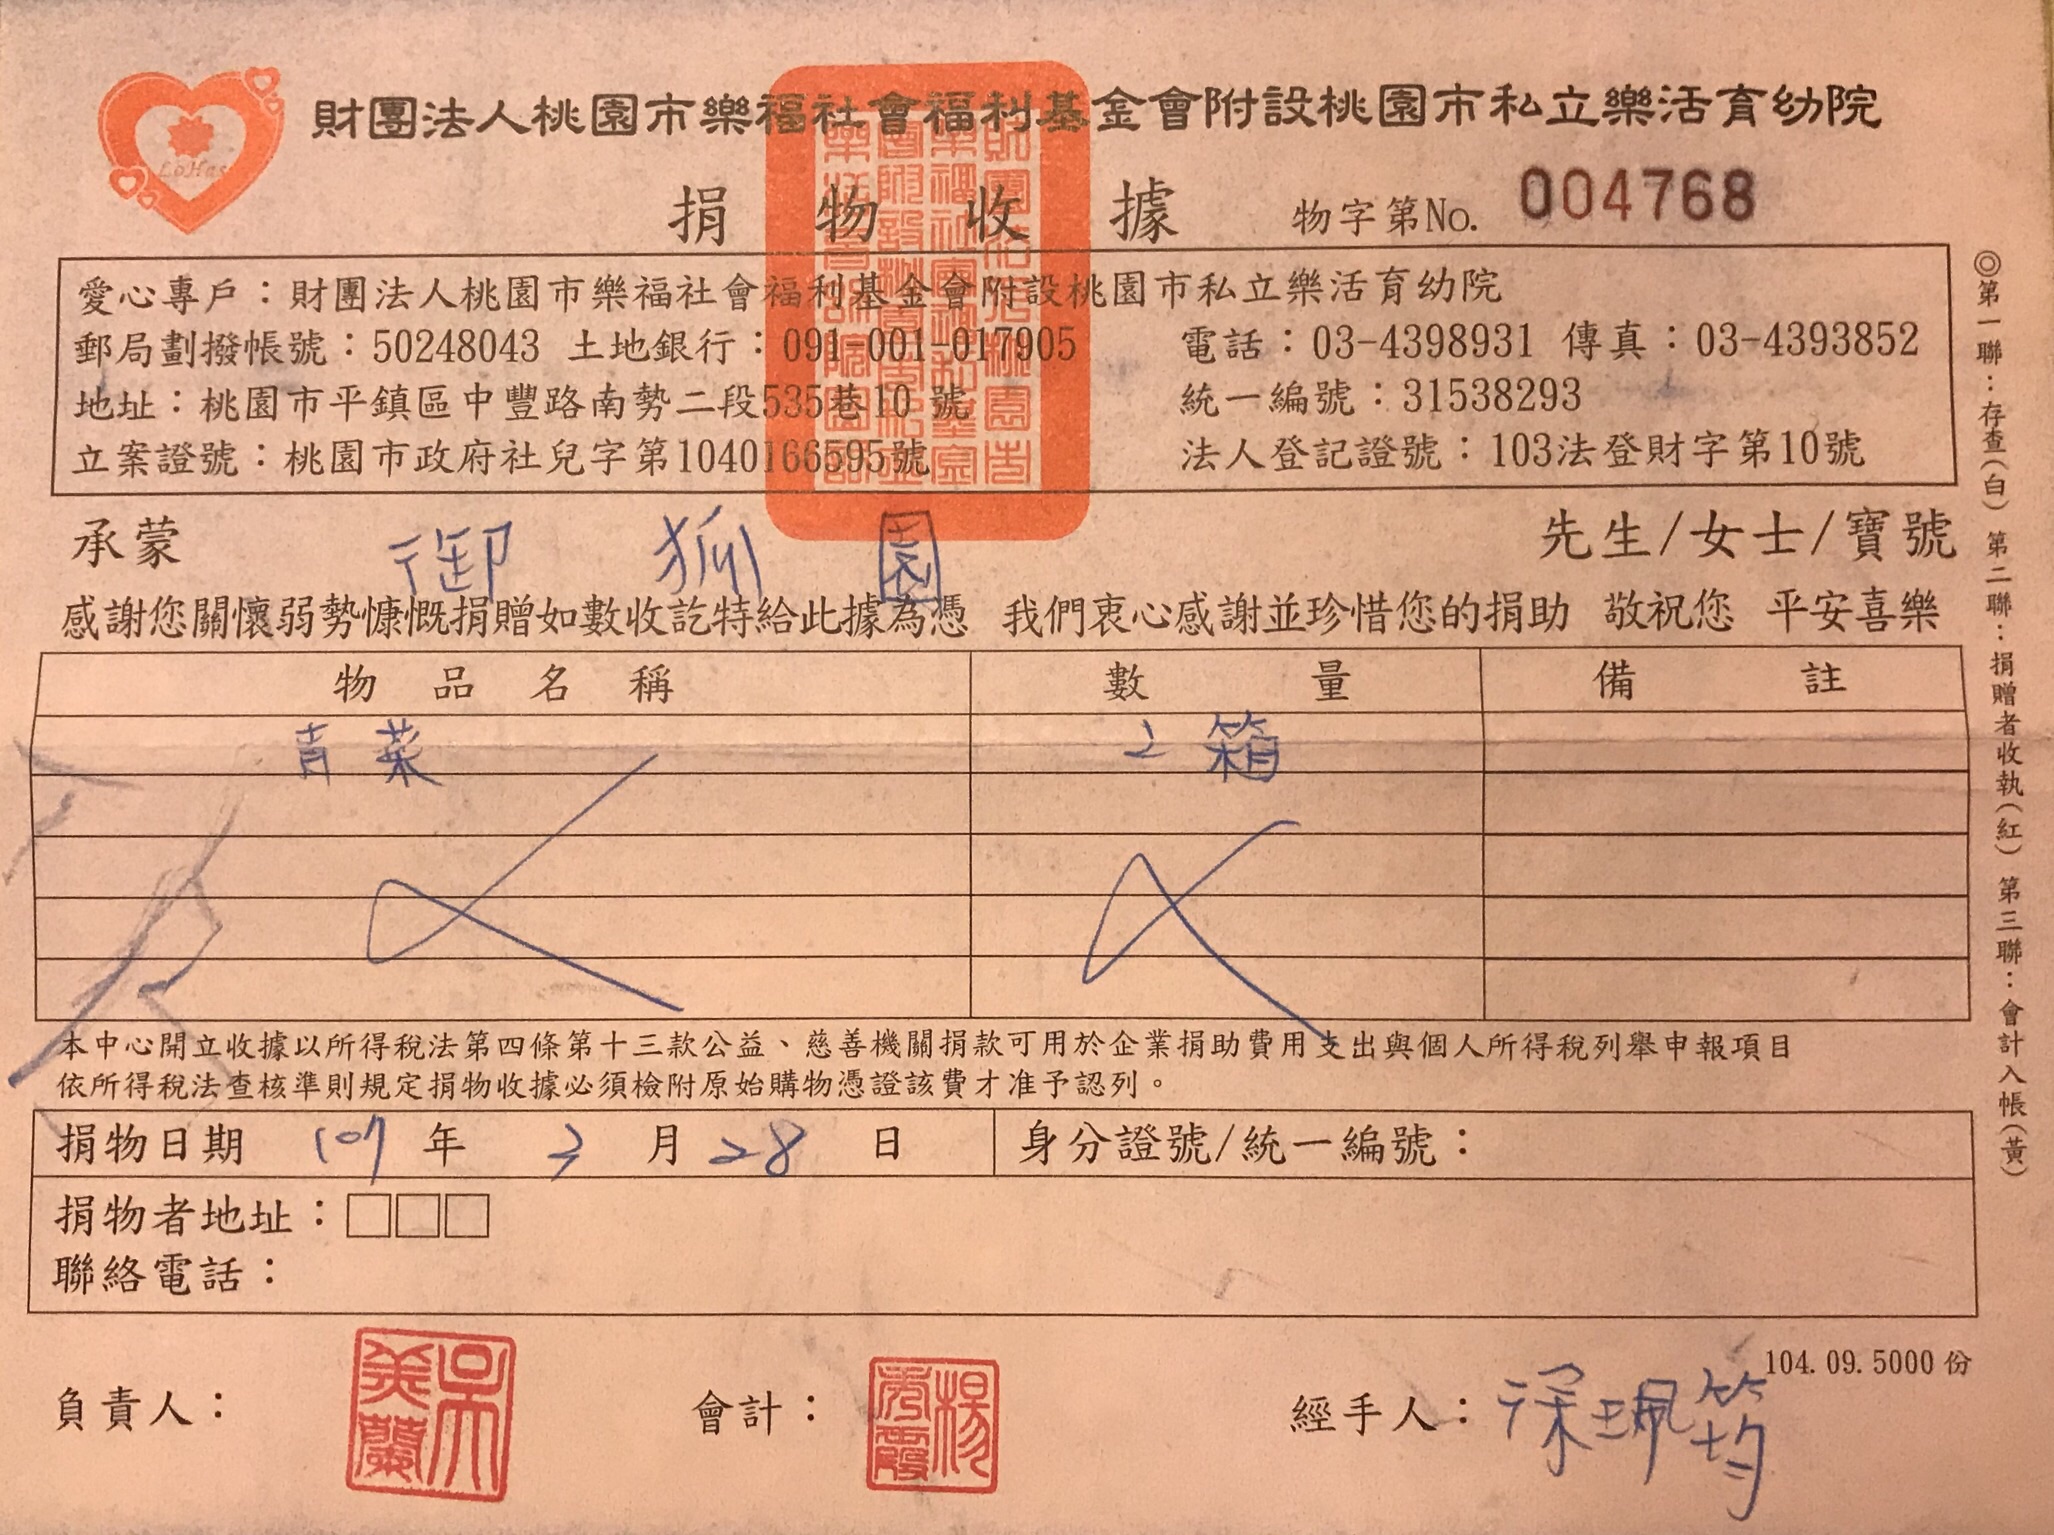 財團法人桃園市樂福社會福利基金會附設桃園市私立樂活育幼院
LoHas
捐物收據 物字第No. 004768
愛心專戶：財團法人桃園市樂福社會福利基金會附設桃園市私立樂活育幼院
郵局劃撥帳號：50248043 土地銀行：091-001-017905 電話：03-4398931 傳真：03-4393852
地址：桃園市平鎮區中豐路南勢二段535巷10號 統一編號：31538293
立案證號：桃園市政府社兒字第1040166595號 法人登記證號：103法登財字第10號
承蒙 御狐園 先生/女士/寶號
感謝您關懷弱勢慷慨捐贈如數收訖特給此據為憑 我們衷心感謝並珍惜您的捐助 敬祝您 平安喜樂
物品名稱 數量 備註
青菜 2箱
本中心開立收據以所得稅法第四條第十三款公益、慈善機關捐款可用於企業捐助費用支出與個人所得稅列舉申報項目
依所得稅法查核準則規定捐物收據必須檢附原始購物憑證該費才准予認列。
捐物日期 107年3月28日 身分證號/統一編號：
捐物者地址：□□□
聯絡電話：
104.09.5000份
負責人：吳美蘭 會計：楊秀霞 經手人：徐珮筠
◎第一聯：存查(白) 第二聯：捐贈者收執(紅) 第三聯：會計入帳(黃)